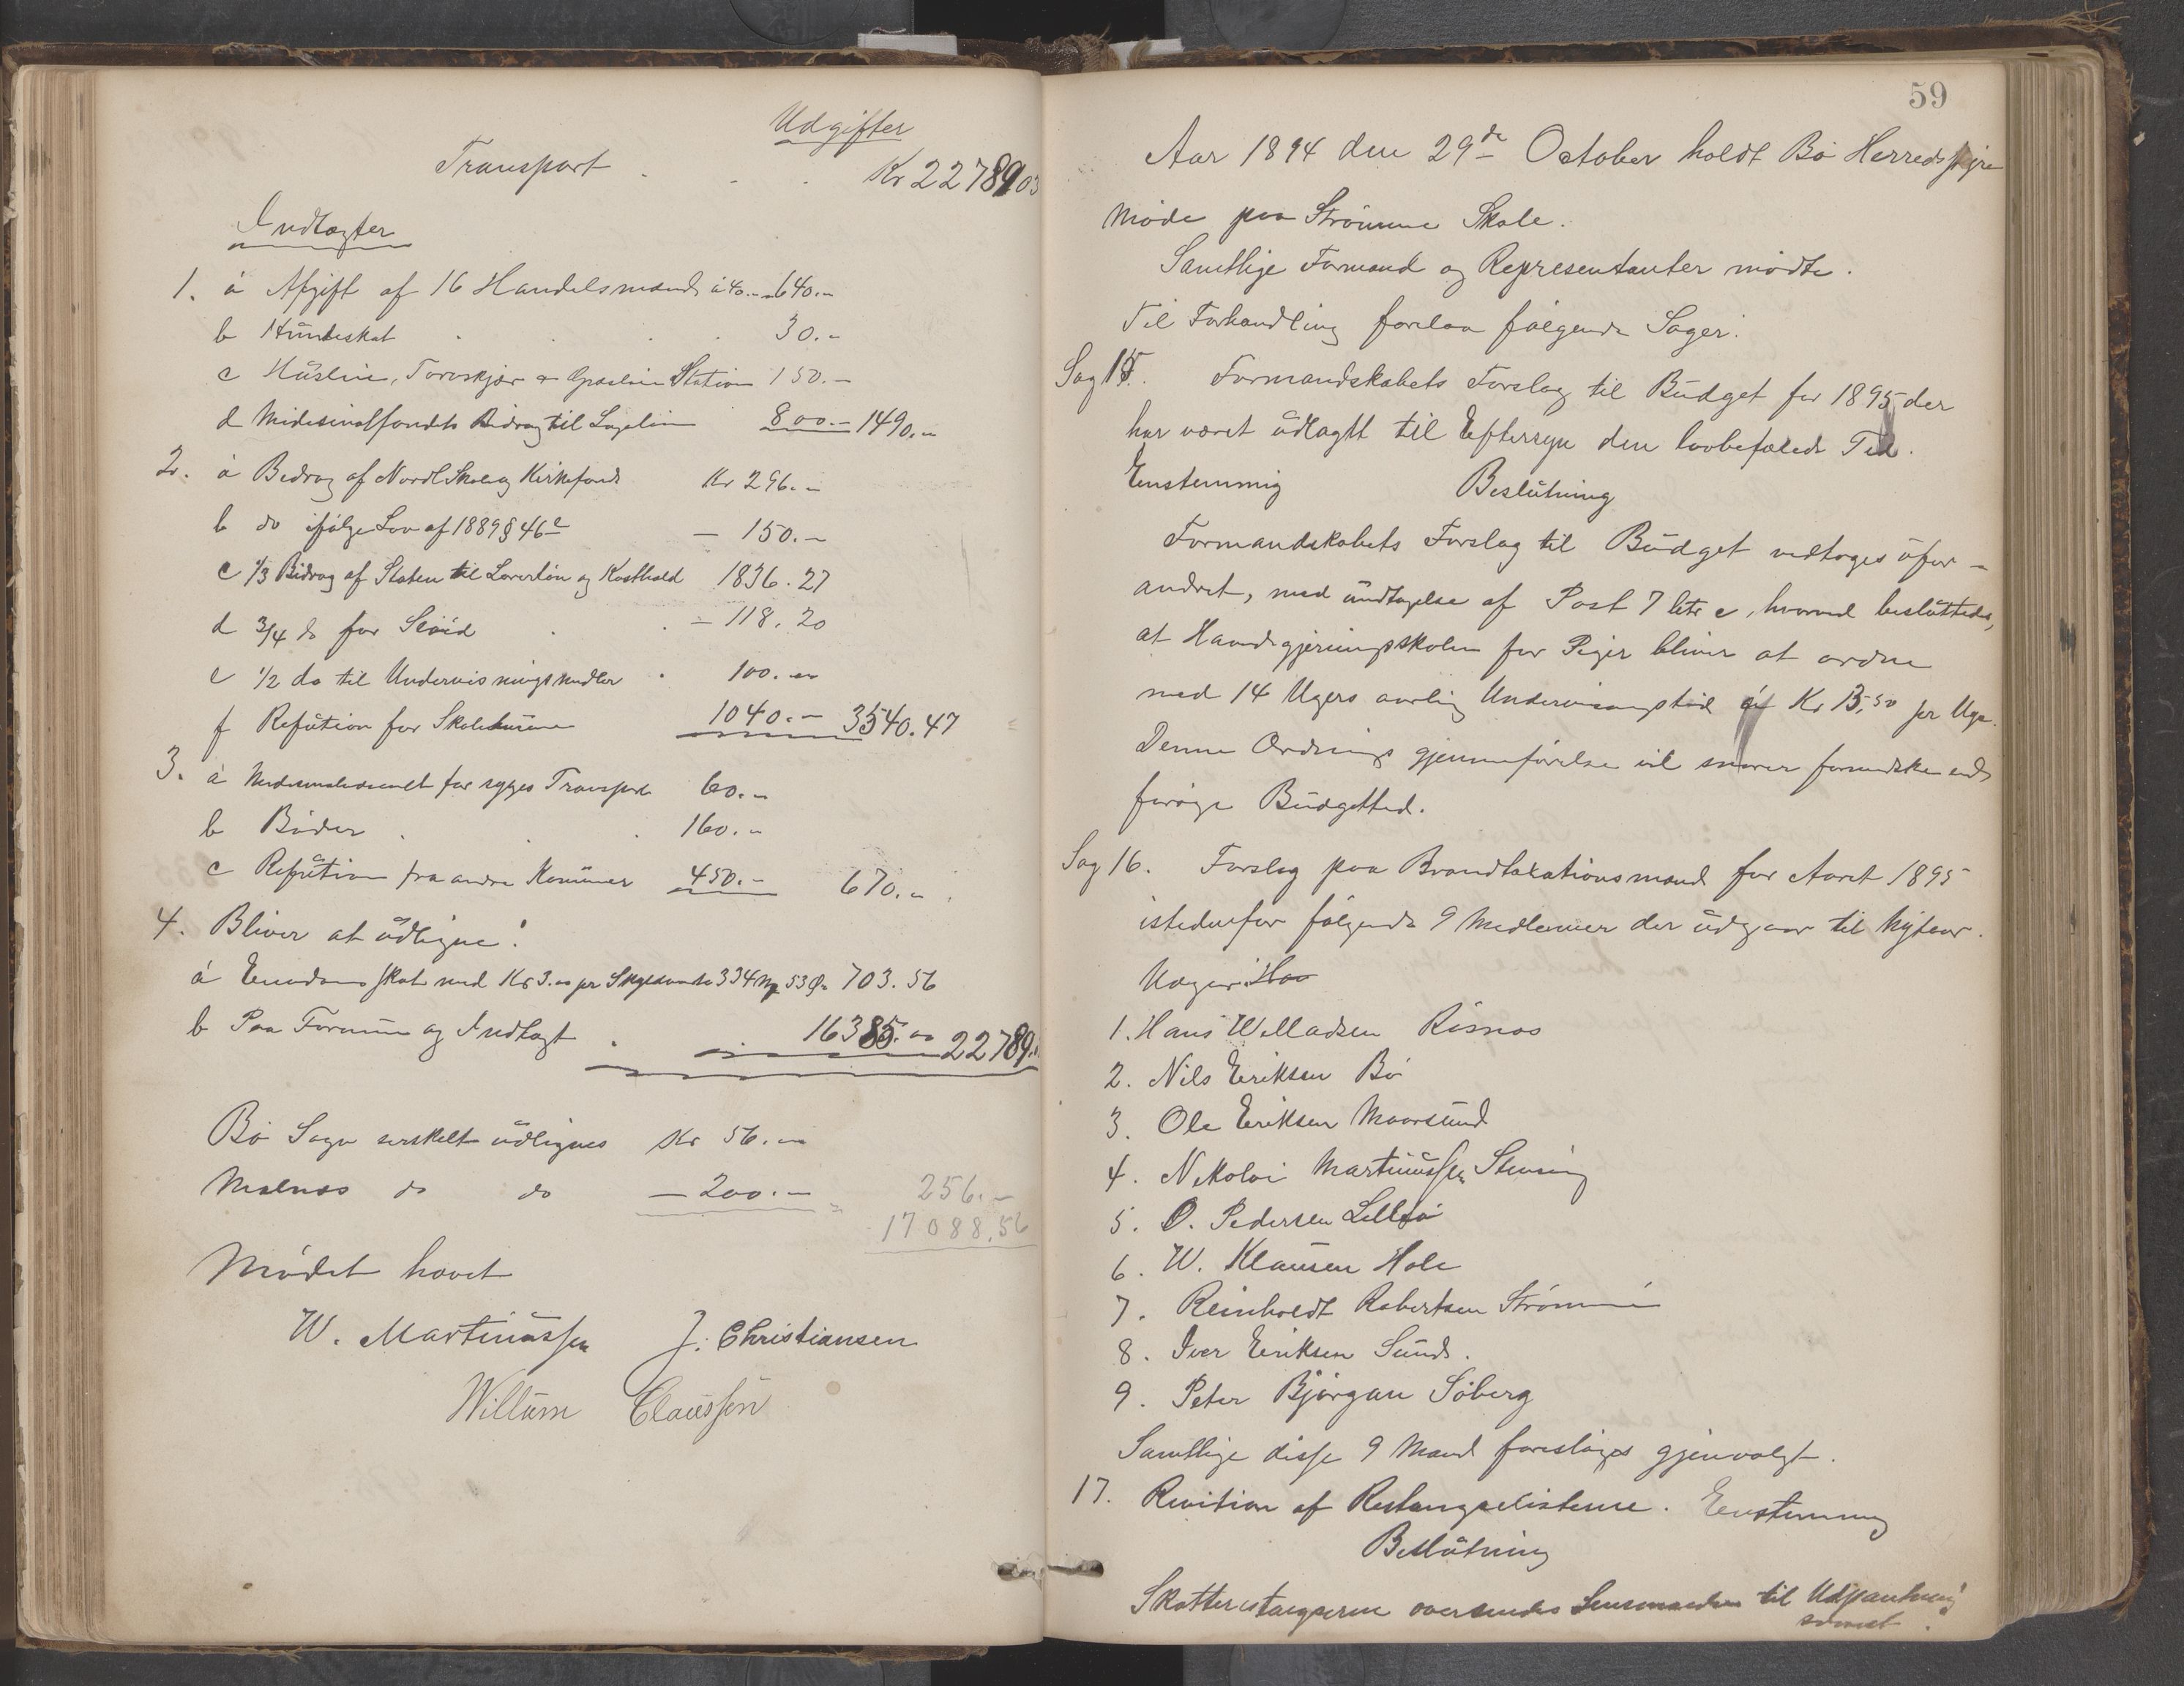 Udgifter
Transport . . . Kr 22789 03
Indtægter
1. a Afgift af 16 Handelsmænd à 40.- 640.-
b Hundeskat . . . 30.-
c Husleie, Torvskjær & Græsleie Station 150.-
d Medisinalfondets Bidrag til Lægeløn 800.- 1490.-
2. a Bidrag af Nordl Skole og Kirkefond Kr 296.-
b do ifølge Lov af 1889 § 46 - 150.-
c 1/3 Bidrag af Staten til Lærerløn og Kosthold 1836.27
d 3/4 do for Sløid . . - 118.20
e 1/2 do til Undervisningsmidler . 100.-
f Refution for Skolehusene 1040.- 3540.47
3. a for syges Transport 60.-
b Bøder . . 160.-
c Refution fra andre Komuner 450.- 670.-
4. Bliver at udligne:
a Eiendomsskat med Kr 3.- pr Skyldmark 234 M 53 Ø. 703.56
b Paa Formue og Indtægt . 16385.- 22789.
Bø Sogn særskilt udlignes Kr 56.-
Malnæs do do - 200.- 256.-
17088.56
Mødet hævet
W. Martinussen J. Christiansen
Willum Claussen
59
Aar 1894 den 29de October holdt Bø Herredsstyre
Møde paa Strømme Skole.
Samtlige Formænd og Representanter mødte.
Til Forhandling forelaa følgende Sager:
Sag 15. Formandskabets Forslag til Budget for 1895 der
har været udlagtt til Eftersyn den lovbefalede Tid.
Enstemmig Beslutning
Formandskabets Forslag til Budget vedtoges ufor-
andret, med undtagelse af Post 7 litr c, hvorved besluttedes,
at Haandgjerningsskolen for Piger bliver at ordne
med 14 Ugers aarlig Undervisningstid á Kr 13,50 pr Uge.
Denne Ordnings gjennemførelse vil snarer formindske end
forøge Budgettet.
Sag 16. Forslag paa Brandtaxationsmænd for Aaret 1895
istedenfor følgende 9 Medlemmer der udgaar til Nytaar.
1. Hans Willadsen Risnæs
2. Nils Eriksen Bø
3. Ole Eriksen Maarsund
4. Nikolai Martinussen Steinsing
5. O. Pedersen Lillebø
6. W. Klausen Hole
7. Reinholdt Robertsen Strømme
8. Iver Eriksen Sund.
9. Peter Bjørgan Søberg
Samtlige disse 9 Mand foresloges gjenvalgt.
17. Revition af Restangselisterne. Enstemmig
Beslutning
Skatterestangserne oversendes Lensmanden til Udpantning
snarest.